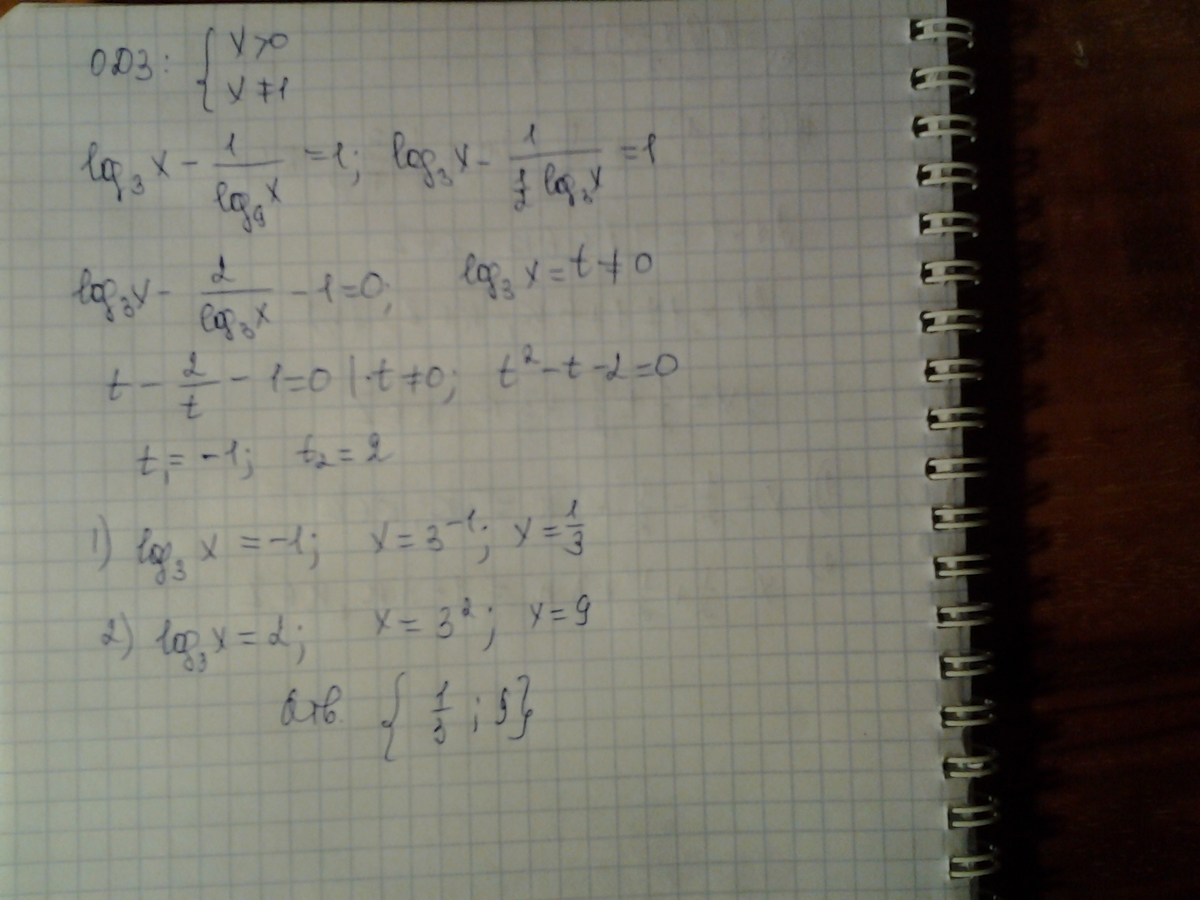 ОДЗ: { x>0
x≠1
log₃x - 1/log₉x =1; log₃x - 1/(½ log₃x) =1
log₃x - 2/log₃x - 1=0; log₃x = t ≠ 0
t - 2/t - 1=0 |·t≠0; t² - t - 2=0
t₁= -1; t₂= 2
1) log₃x = -1; x = 3⁻¹; x = 1/3
2) log₃x = 2; x = 3²; x = 9
Отв. { 1/3 ; 9}